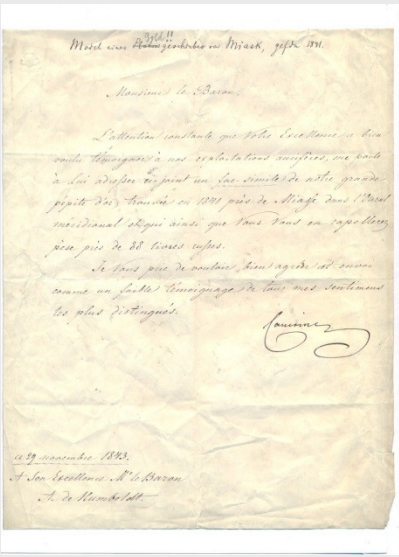 Model eines geschenkes in Miask, gefdn 1841.
Monsieur le Baron,
L'attention constante que Votre Excellence a bien
voulu témoigner à nos exploitations aurifères, me porte
à Lui adresser cijoint un fac simile de notre grande
pépite d'or, trouvée en 1841 près de Miask dans l'Oural
méridional et qui ainsi que Vous Vous en rappellerez
pèse près de 88 livres russes.
Je Vous prie de vouloir bien agréer cet envoi
comme un faible témoignage de tous mes sentimens
les plus distingués.
Cancrine
ce 29 novembre 1843.
A Son Excellence Mr le Baron
A. de Humboldt.